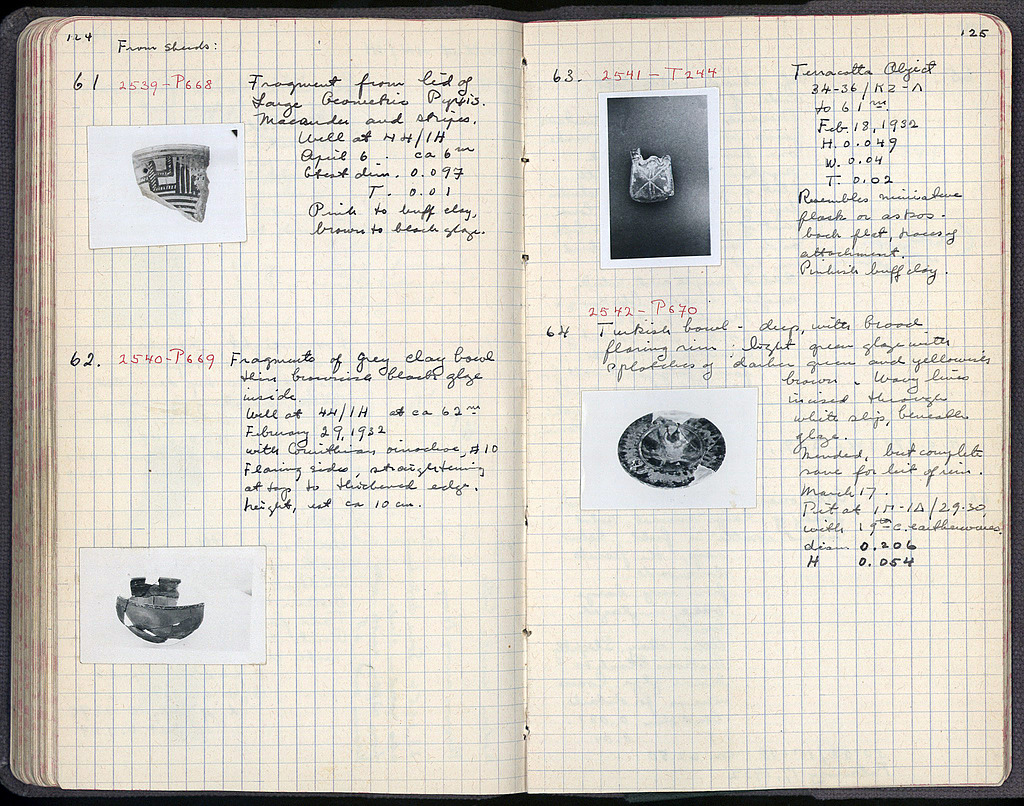 124
From sherds:
61 2539-P668 Fragment from lid of
Large Geometric Pyxis.
Maeander and stripes.
Well at 44/IH
April 6 .. ca 6 m
Gtest dim. 0.097
T. 0.01
Pink to buff clay,
brown to black glaze.
62. 2540-P669 Fragments of Grey clay bowl
thin brownish black glaze
inside.
Well at 44/IH at ca 62 m
February 29, 1932
with Corinthian oinochoe, #10
Flaring sides, straightening
at top to thickened edge.
height, est ca 10 cm.
125
63. 2541-T244 Terracotta Object
34-36/KZ-Λ
to 61 m
Feb. 18, 1932
H. 0.049
W. 0.04
T. 0.02
Resembles miniature
flask or askos.
back flat, traces of
attachment.
Pinkish buff clay.
2542-P670
64 Turkish bowl - deep, with broad
flaring rim: light green glaze with
splotches of darker green and yellowish
brown. Wavy lines
incised through
white slip, beneath
glaze.
Mended, but complete
save for bit of rim.
March 17.
Pit at ΙΠ-ΙΔ/29-30,
with 19th c. earthenwares.
diam 0.206
H 0.054